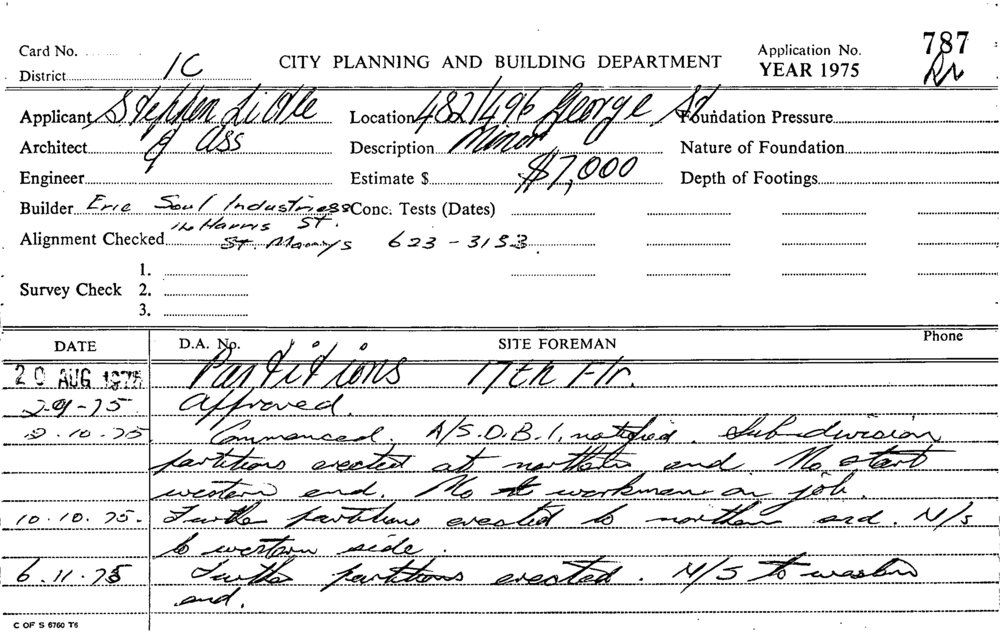 Card No.
Application No. 787
District 1C CITY PLANNING AND BUILDING DEPARTMENT YEAR 1975
Applicant Stephen Lidle Location 482/496 George St Foundation Pressure
Architect & Ass Description Minor Nature of Foundation
Engineer Estimate $ $7,000 Depth of Footings
Builder Eric Soul Industries Conc. Tests (Dates)
Harris St.
Alignment Checked St. Marys 623-3153
1.
Survey Check 2.
3.
DATE D.A. No. SITE FOREMAN Phone
20 AUG 1975 Partitions 17th Flr.
2-9-75 Approved.
10.75 Commenced. A/S.D.B.I. notified. Subdivision
partitions erected at northern end. No start
western end. No workman on job.
10.10.75. Further partitions erected to northern end. N/S
to western side.
6.11.75 Further partitions erected. N/S to western
end.
C OF S 6760 T6